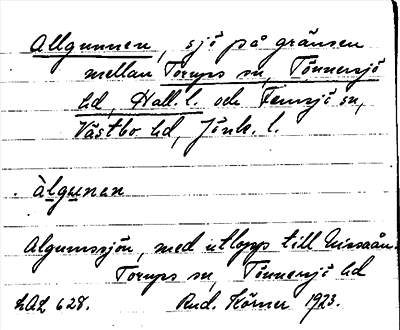 Allgunnen, sjö på gränsen
mellan Torups sn, Tönnersjö
hd, Hall. l. och Femsjö sn,
Västbo hd, Jönk. l.
àlgunen
Algunnssjön, med utlopp till Nissaån.
Torups sn, Tönnersjö hd
LAL 628. Rud. Körner 1923.